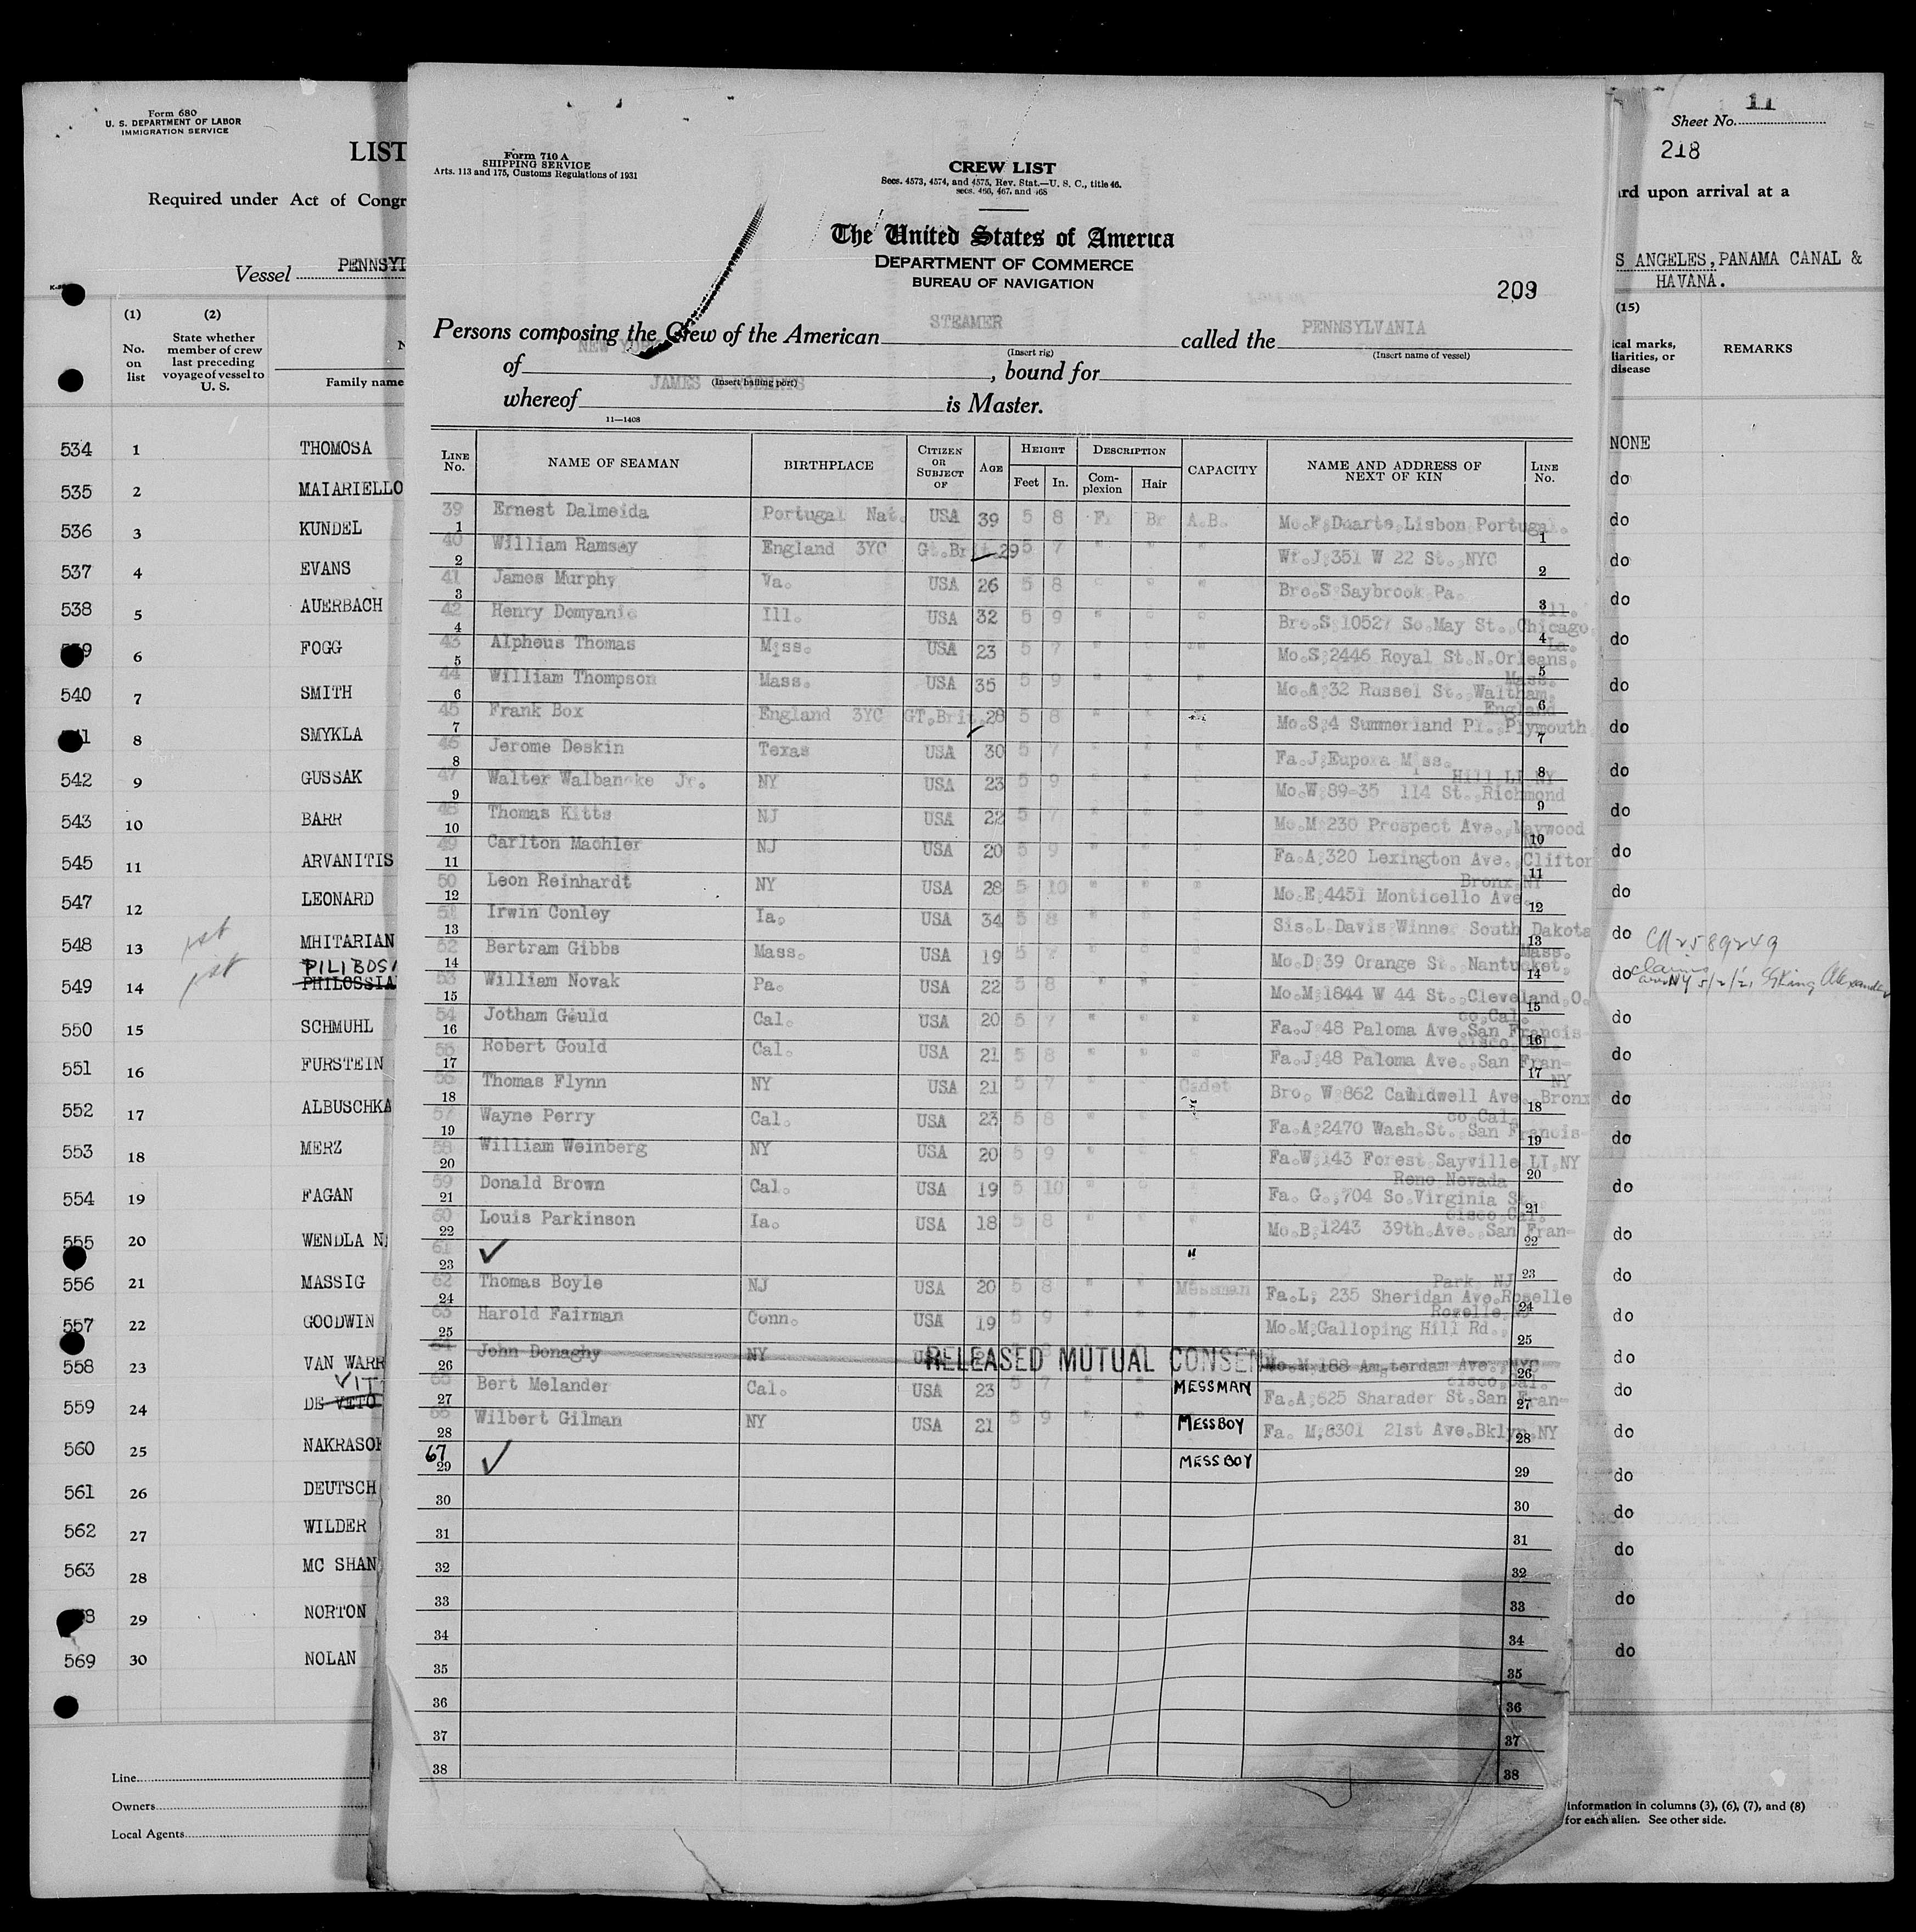 Form 680
U. S. DEPARTMENT OF LABOR
IMMIGRATION SERVICE
LIST
Required under Act of Congr
Vessel PENNSYL
(1) (2)
No. on list
State whether member of crew last preceding voyage of vessel to U. S.
Family name
534 1 THOMOSA
535 2 MAIARIELLO
536 3 KUNDEL
537 4 EVANS
538 5 AUERBACH
6 FOGG
540 7 SMITH
8 SMYKLA
542 9 GUSSAK
543 10 BARR
545 11 ARVANITIS
547 12 LEONARD
548 13 1st MHITARIAN
PILIBOSI
549 14 1st PHILOSSIA
550 15 SCHMUHL
551 16 FURSTEIN
552 17 ALBUSCHKA
553 18 MERZ
554 19 FAGAN
555 20 WENDLA N
556 21 MASSIG
557 22 GOODWIN
558 23 VAN WARR
VIT
559 24 DE VETO
560 25 NAKRASO
561 26 DEUTSCH
562 27 WILDER
563 28 MC SHAN
29 NORTON
569 30 NOLAN
Line
Owners
Local Agents
Form 710 A
SHIPPING SERVICE
Arts. 113 and 175, Customs Regulations of 1931
CREW LIST
Secs. 4573, 4574, and 4575, Rev. Stat.—U. S. C., title 46,
secs. 466, 467, and 468
The United States of America
DEPARTMENT OF COMMERCE
BUREAU OF NAVIGATION
209
Persons composing the Crew of the American STEAMER called the PENNSYLVANIA
(Insert rig) (Insert name of vessel)
of NEW YORK, bound for
(Insert hailing port)
whereof JAMES C ROBERTS is Master.
11—1408
LINE No. NAME OF SEAMAN BIRTHPLACE CITIZEN OR SUBJECT OF AGE HEIGHT Feet In. DESCRIPTION Complexion Hair CAPACITY NAME AND ADDRESS OF NEXT OF KIN LINE No.
39 1 Ernest Dalmeida Portugal Nat. USA 39 5 8 Fr Br A.B. Mo.F;Duarte,Lisbon Portugal. 1
40 2 William Ramsey England 3YC Gt.Brit. 29 5 7 " " " Wf.J;351 W 22 St.,NYC 2
41 3 James Murphy Va. USA 26 5 8 " " " Bro.S Saybrook Pa. 3
42 4 Henry Domyanic Ill. USA 32 5 9 " " " Bro.S 10527 So.May St.,Chicago, Ill. 4
43 5 Alpheus Thomas Miss. USA 23 5 7 " " " Mo.S;2446 Royal St.N.Orleans, La. 5
44 6 William Thompson Mass. USA 35 5 9 " " " Mo.A;32 Russel St., Waltham, Mass. 6
45 7 Frank Box England 3YC GT.Brit. 28 5 8 " " " Mo.S;4 Summerland Pl., Plymouth England 7
46 8 Jerome Deskin Texas USA 30 5 7 " " " Fa.J;Eupora Miss. 8
47 9 Walter Walbancke Jr. NY USA 23 5 9 " " " Mo.W;89-35 114 St.,Richmond Hill LI NY 9
48 10 Thomas Kitts NJ USA 22 5 7 " " " Mo.M;230 Prospect Ave.,Maywood 10
49 11 Carlton Machler NJ USA 20 5 9 " " " Fa.A;320 Lexington Ave.,Clifton NJ 11
50 12 Leon Reinhardt NY USA 28 5 10 " " " Mo.E;4451 Monticello Ave. Bronx NY 12
51 13 Irwin Conley Ia. USA 34 5 8 " " " Sis.L.Davis Winner South Dakota 13
52 14 Bertram Gibbs Mass. USA 19 5 7 " " " Mo.D;39 Orange St. Nantucket, Mass. 14
53 15 William Novak Pa. USA 22 5 8 " " " Mo.M;1844 W 44 St.,Cleveland,O. 15
54 16 Jotham Gould Cal. USA 20 5 7 " " " Fa.J;48 Paloma Ave.San Francisco,Cal. 16
55 17 Robert Gould Cal. USA 21 5 8 " " " Fa.J;48 Paloma Ave. San Francisco Cal. 17
56 18 Thomas Flynn NY USA 21 5 7 " " Cadet Bro. W;862 Cauldwell Ave. Bronx NY 18
57 19 Wayne Perry Cal. USA 23 5 8 " " " Fa.A;2470 Wash.St. San Francisco,Cal. 19
58 20 William Weinberg NY USA 20 5 9 " " " Fa.W;143 Forest Sayville LI.NY 20
59 21 Donald Brown Cal. USA 19 5 10 " " " Fa. G.,704 So.Virginia St., Reno Nevada 21
60 22 Louis Parkinson Ia. USA 18 5 8 " " " Mo.B;1243 39th Ave. San Francisco,Cal. 22
61 23 ✓ " 23
62 24 Thomas Boyle NJ USA 20 5 8 " " Messman Fa.L; 235 Sheridan Ave.Roselle Park NJ 24
63 25 Harold Fairman Conn. USA 19 5 9 " " " Mo.M;Galloping Hill Rd., Roselle NJ 25
26 John Donaghy NY USA RELEASED MUTUAL CONSENT Mo.M;188 Amsterdam Ave.,NYC 26
65 27 Bert Melander Cal. USA 23 5 7 " " MESSMAN Fa.A;625 Sharader St.San Francisco,Cal. 27
66 28 Wilbert Gilman NY USA 21 5 9 " " MESSBOY Fa. M;8301 21st Ave.Bklyn,NY 28
67 29 ✓ MESSBOY 29
30 30
31 31
32 32
33 33
34 34
35 35
36 36
37 37
38 38
11
Sheet No.
218
rd upon arrival at a
S ANGELES,PANAMA CANAL &
HAVANA.
(15)
ical marks,
liarities, or
disease
REMARKS
NONE
do
do
do
do
do
do
do
do
do
do
do
do CR 2589249
do claims
do
do
do
do
do
do
do
do
do
do
do
do
do
do
do
do
information in columns (3), (6), (7), and (8)
for each alien. See other side.